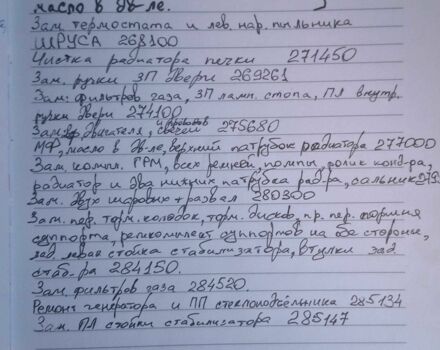 масло в дв-ле.
Зам. термостата и лев. нар. пыльника
ШРУСА 268100
Чистка радиатора печки 271450
Зам. ручки ЗП двери 269261
Зам. фильтров газа, ЗП ламп. стопа, ПЛ внутр.
ручки двери 274100
Зам. двигателя, и проводов свечей 275680
МФ, масло в дв-ле, верхний патрубок радиатора 277000
Зам. компл. ГРМ, всех ремней, помпы, ролик конд-ра,
радиатор и два нижних патрубка рад-ра, сальник
Зам. двух шаровых + развал 280300
Зам. пер. торм. колодок, торм. дисков, пр. пер. поршня
суппорта, ремкомплект суппортов на обе стороны,
зад. левая стойка стабилизатора, втулки зад.
стаб-ра 284150.
Зам. фильтров газа 284520.
Ремонт генератора и ПП стеклоподъёмника 285134
Зам. ПЛ стойки стабилизатора 285147